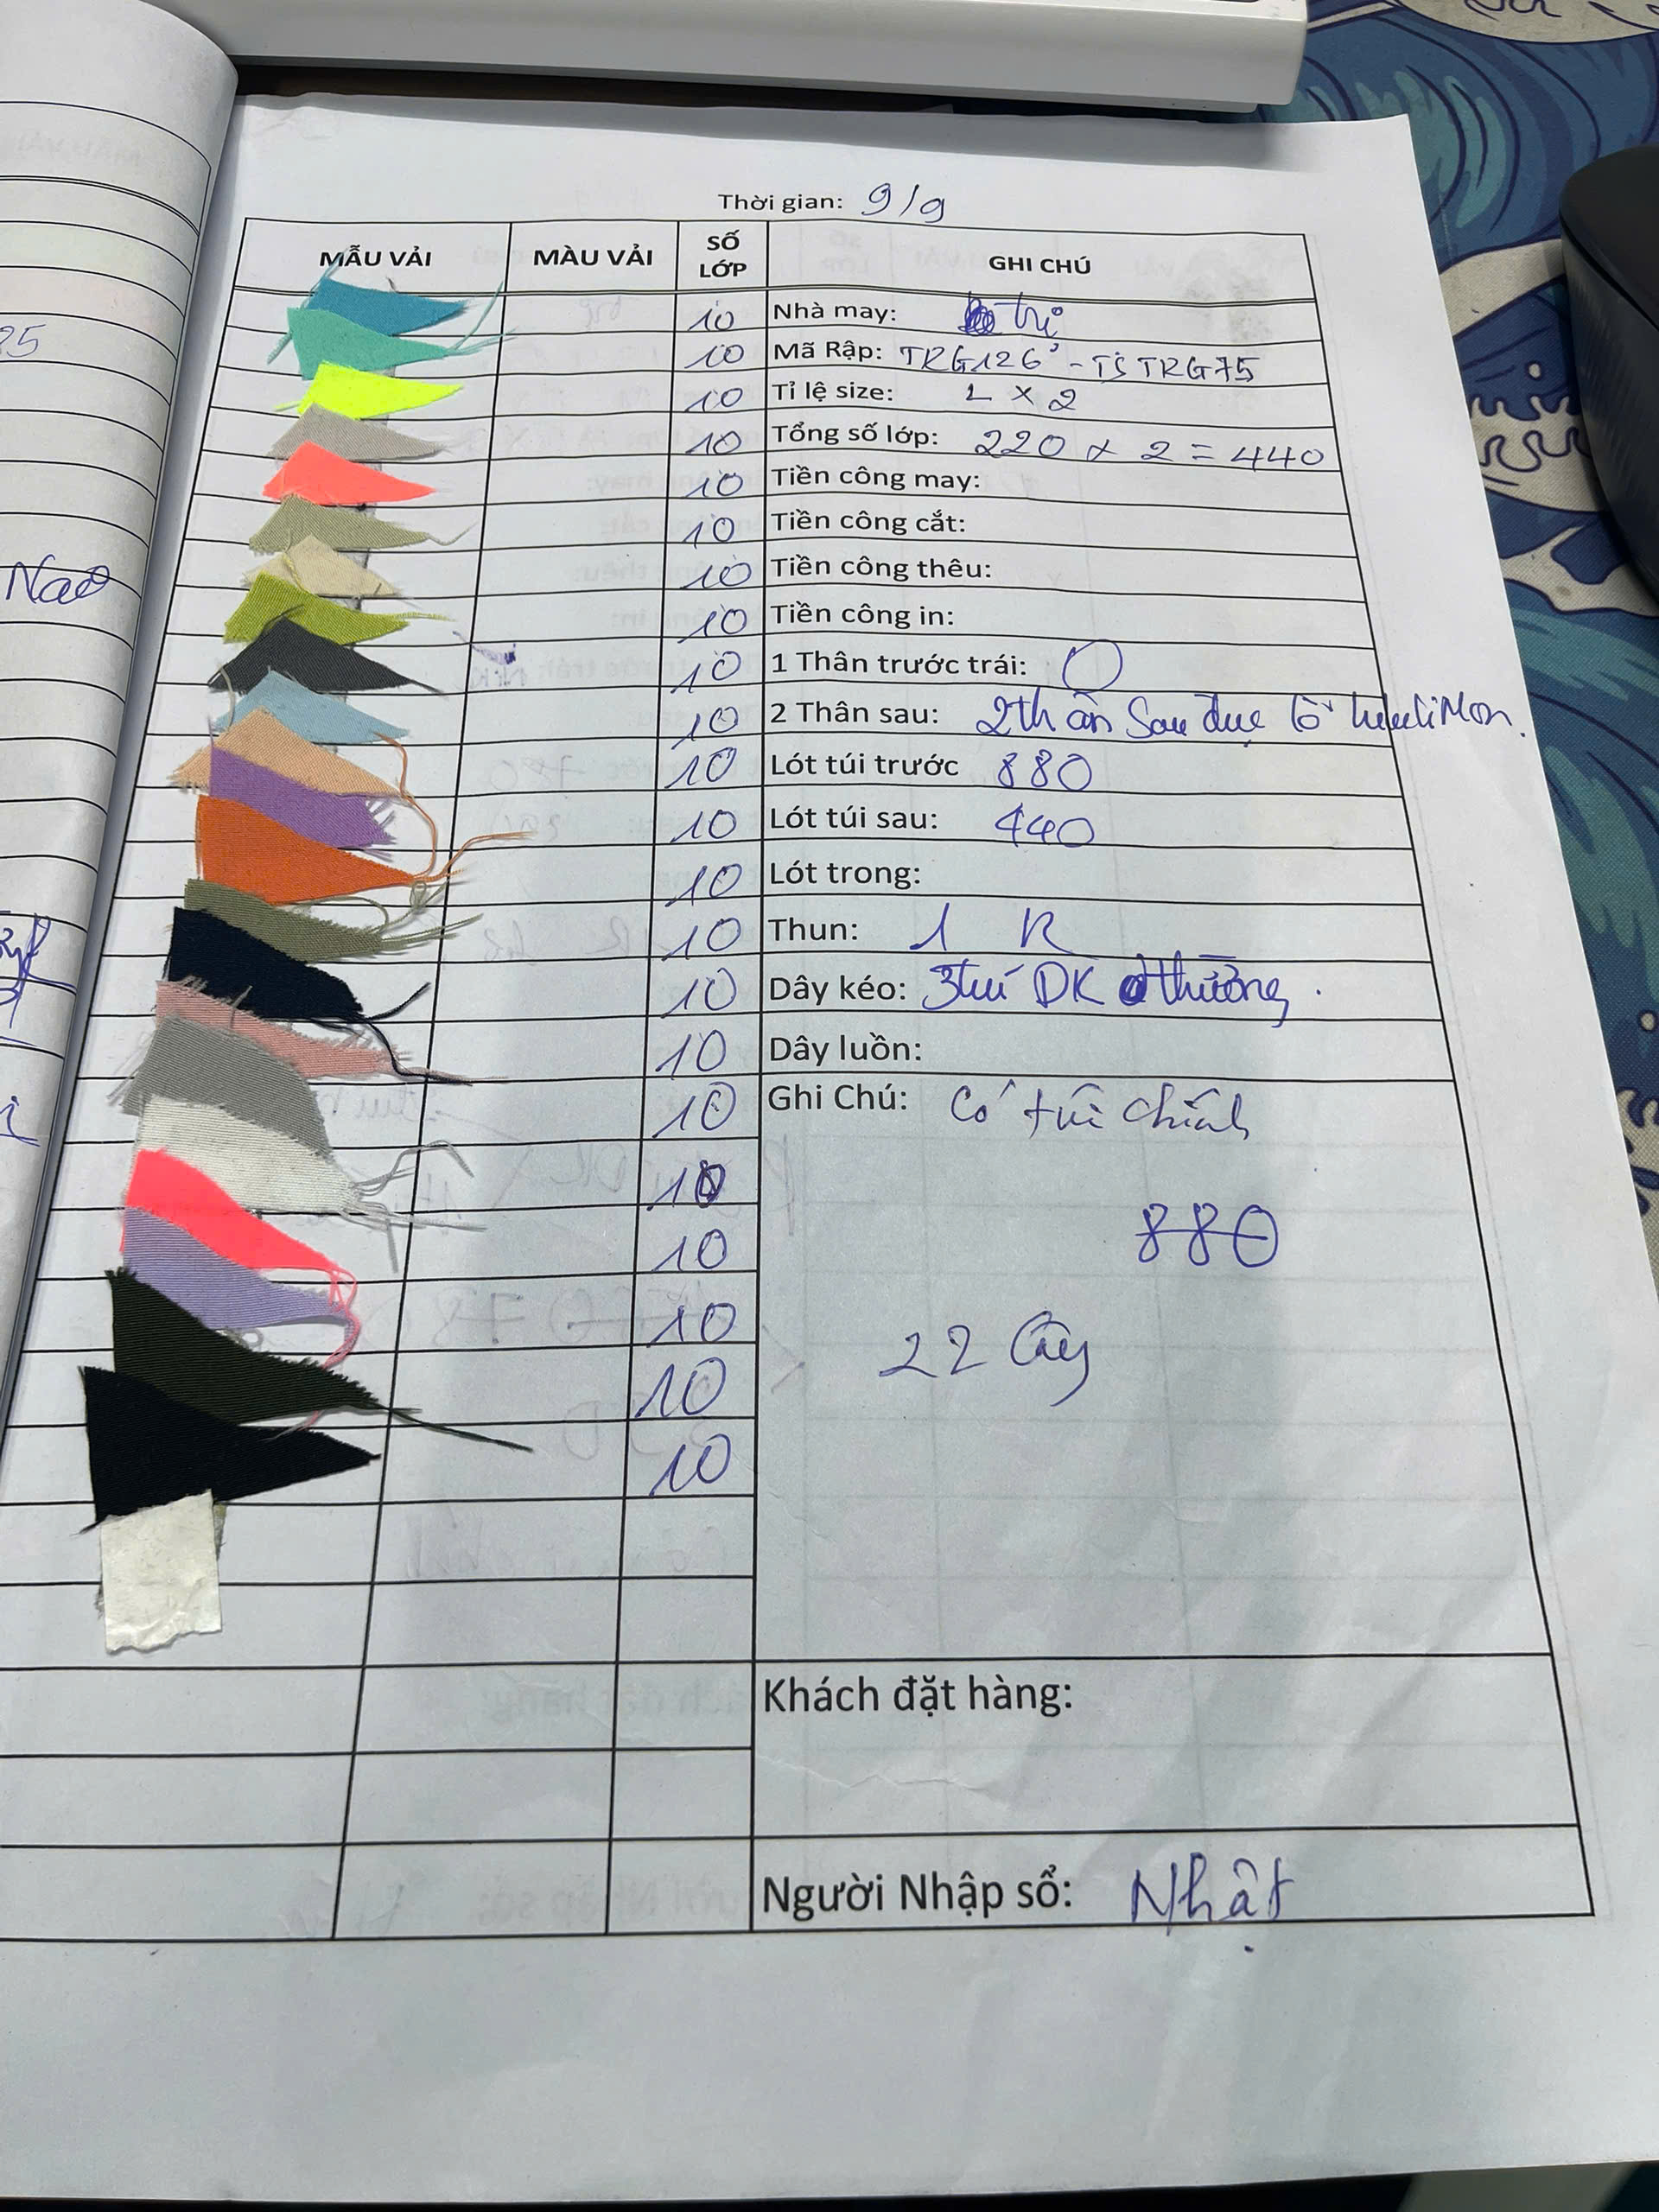 Thời gian: 9/9
MẪU VẢI MÀU VẢI SỐ LỚP GHI CHÚ
10 Nhà may: trị
10 Mã Rập: TRG126 - TS TRG75
10 Tỉ lệ size: L x 2
10 Tổng số lớp: 220 x 2 = 440
10 Tiền công may:
10 Tiền công cắt:
10 Tiền công thêu:
10 Tiền công in:
10 1 Thân trước trái: 0
10 2 Thân sau: 2 thân sau đục lỗ
10 Lót túi trước 880
10 Lót túi sau: 440
10 Lót trong:
10 Thun: 1 R
10 Dây kéo: 3 túi DK thường.
10 Dây luồn:
10 Ghi Chú: Có túi chính
10
10 880
10 22 Cây
10
10
Khách đặt hàng:
Người Nhập sổ: Nhật
25
Nao